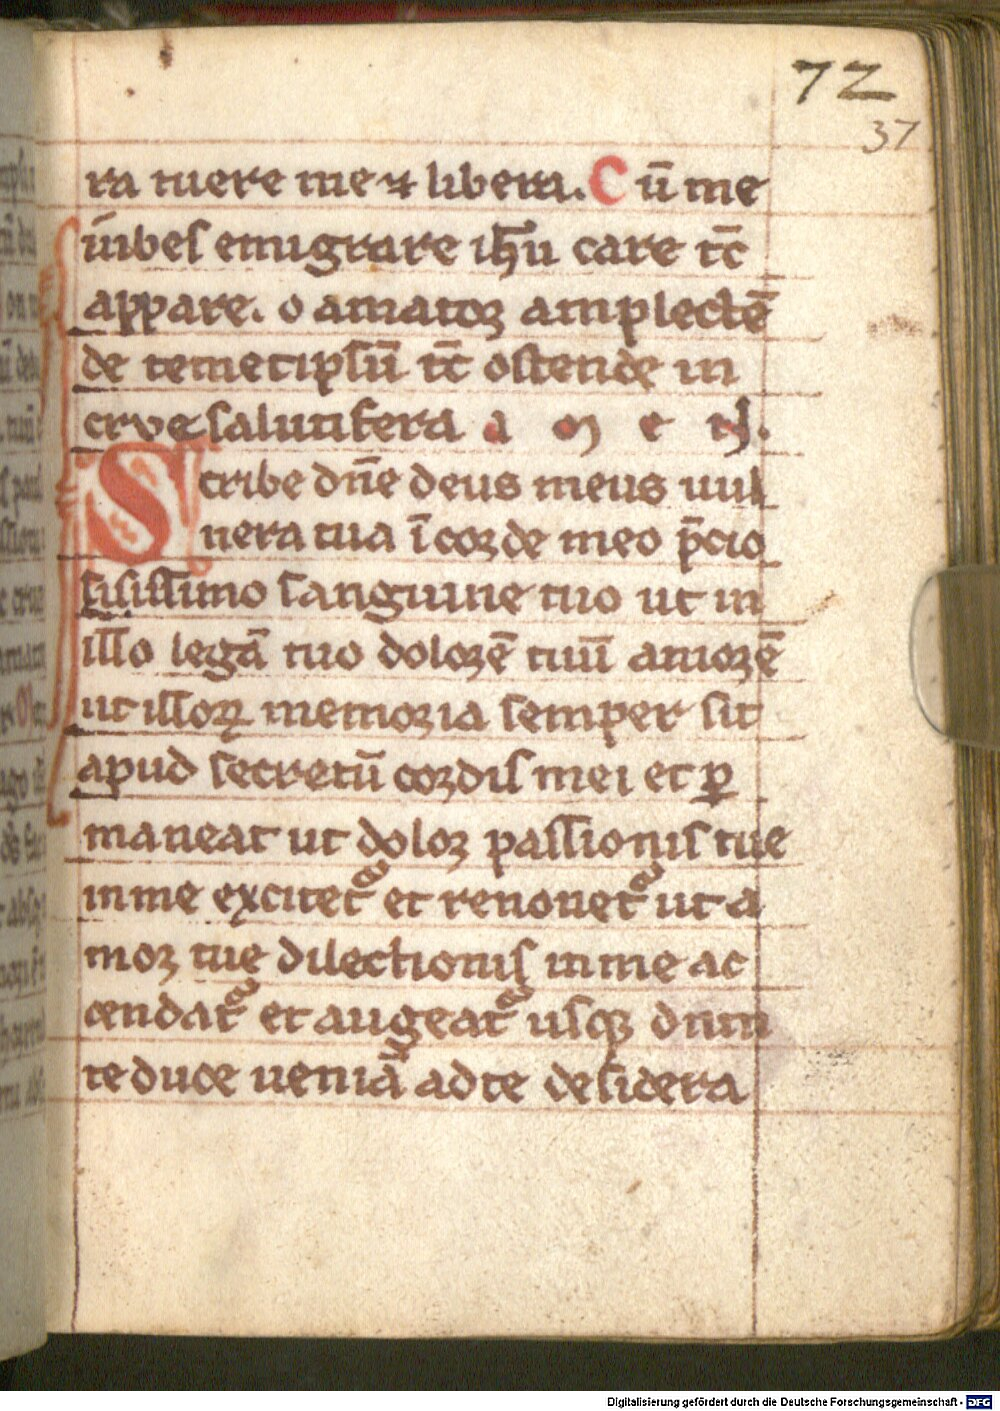 72
37
ra tuere me ⁊ libera. Cū me
iūbes emigrare ih̄u care tc̄
appare. o amator amplectē
de temetipsū tc̄ ostende in
cruce salutifera a m e n.
Scribe dn̄e deus meus uul
nera tua ī corde meo p̄cio
sisissimo sanguine tuo ut in
illo legā tuo dolorē tuū amorē
ut illoꝝ memoria semper sit
apud secretū cordis mei et ꝑ
maneat ut dolor passionis tue
in me excitet᷑ et renouet᷑ ut a
mor tue dilectionis in me ac
cendat᷑ et augeat᷑ usqꝫ dum
te duce ueniā ad te desidera
Digitalisierung gefördert durch die Deutsche Forschungsgemeinschaft - DFG